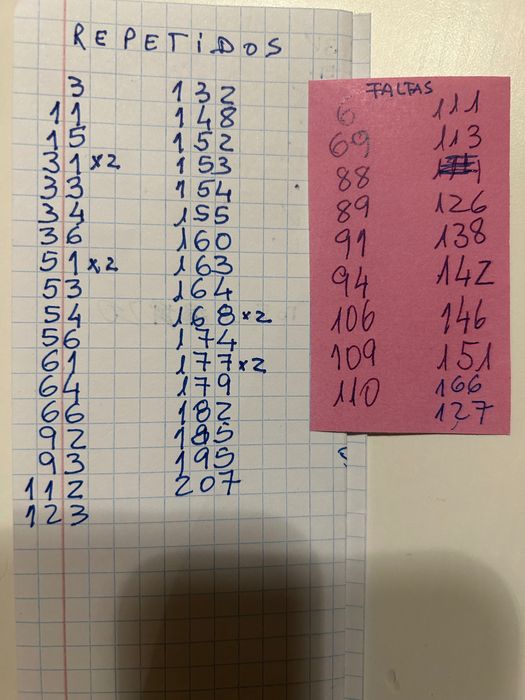 REPETiDOS
3
11
15
31 x2
33
34
36
51 x2
53
54
56
61
64
66
92
93
112
123
132
148
152
153
154
155
160
163
164
168 x2
174
177 x2
179
182
185
195
207
FALTAS
6
69
88
89
91
94
106
109
110
111
113
126
138
142
146
151
166
127